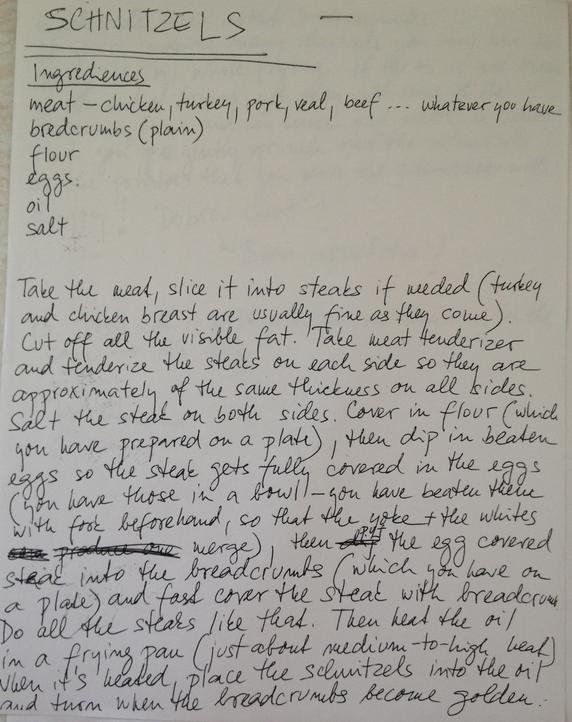 SCHNITZELS
Ingrediences
meat – chicken, turkey, pork, veal, beef ... whatever you have
bredcrumbs (plain)
flour
eggs.
oil
salt
Take the meat, slice it into steaks if needed (turkey
and chicken breast are usually fine as they come).
Cut off all the visible fat. Take meat tenderizer
and tenderize the steaks on each side so they are
approximately of the same thickness on all sides.
Salt the steak on both sides. Cover in flour (which
you have prepared on a plate), then dip in beaten
eggs so the steak gets fully covered in the eggs
(you have those in a bowl – you have beaten them
with fork beforehand, so that the yoke + the whites
merge), then put the egg covered
steak into the breadcrumbs (which you have on
a plate) and fast cover the steak with breadcrumbs
Do all the steaks like that. Then heat the oil
in a frying pan (just about medium-to-high heat)
When it's heated, place the schnitzels into the oil
and turn when the breadcrumbs become golden.